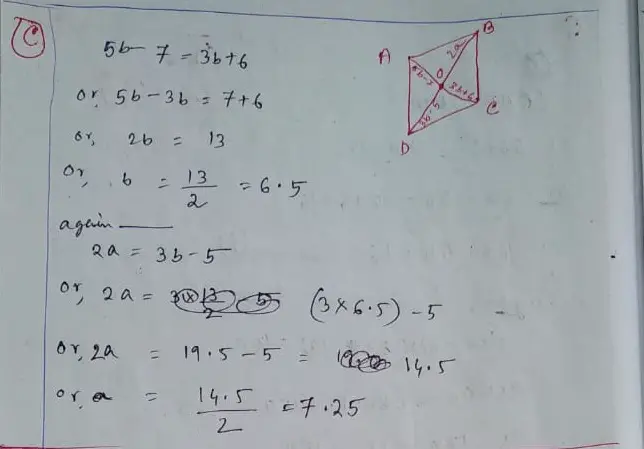 C
5b - 7 = 3b + 6
or, 5b - 3b = 7 + 6
or, 2b = 13
or, b = 13/2 = 6.5
again
2a = 3b - 5
or, 2a = (3 × 6.5) - 5
or, 2a = 19.5 - 5 = 14.5
or, a = 14.5/2 = 7.25
B
A
2a
O
5b-7
3b+6
C
3b-5
D